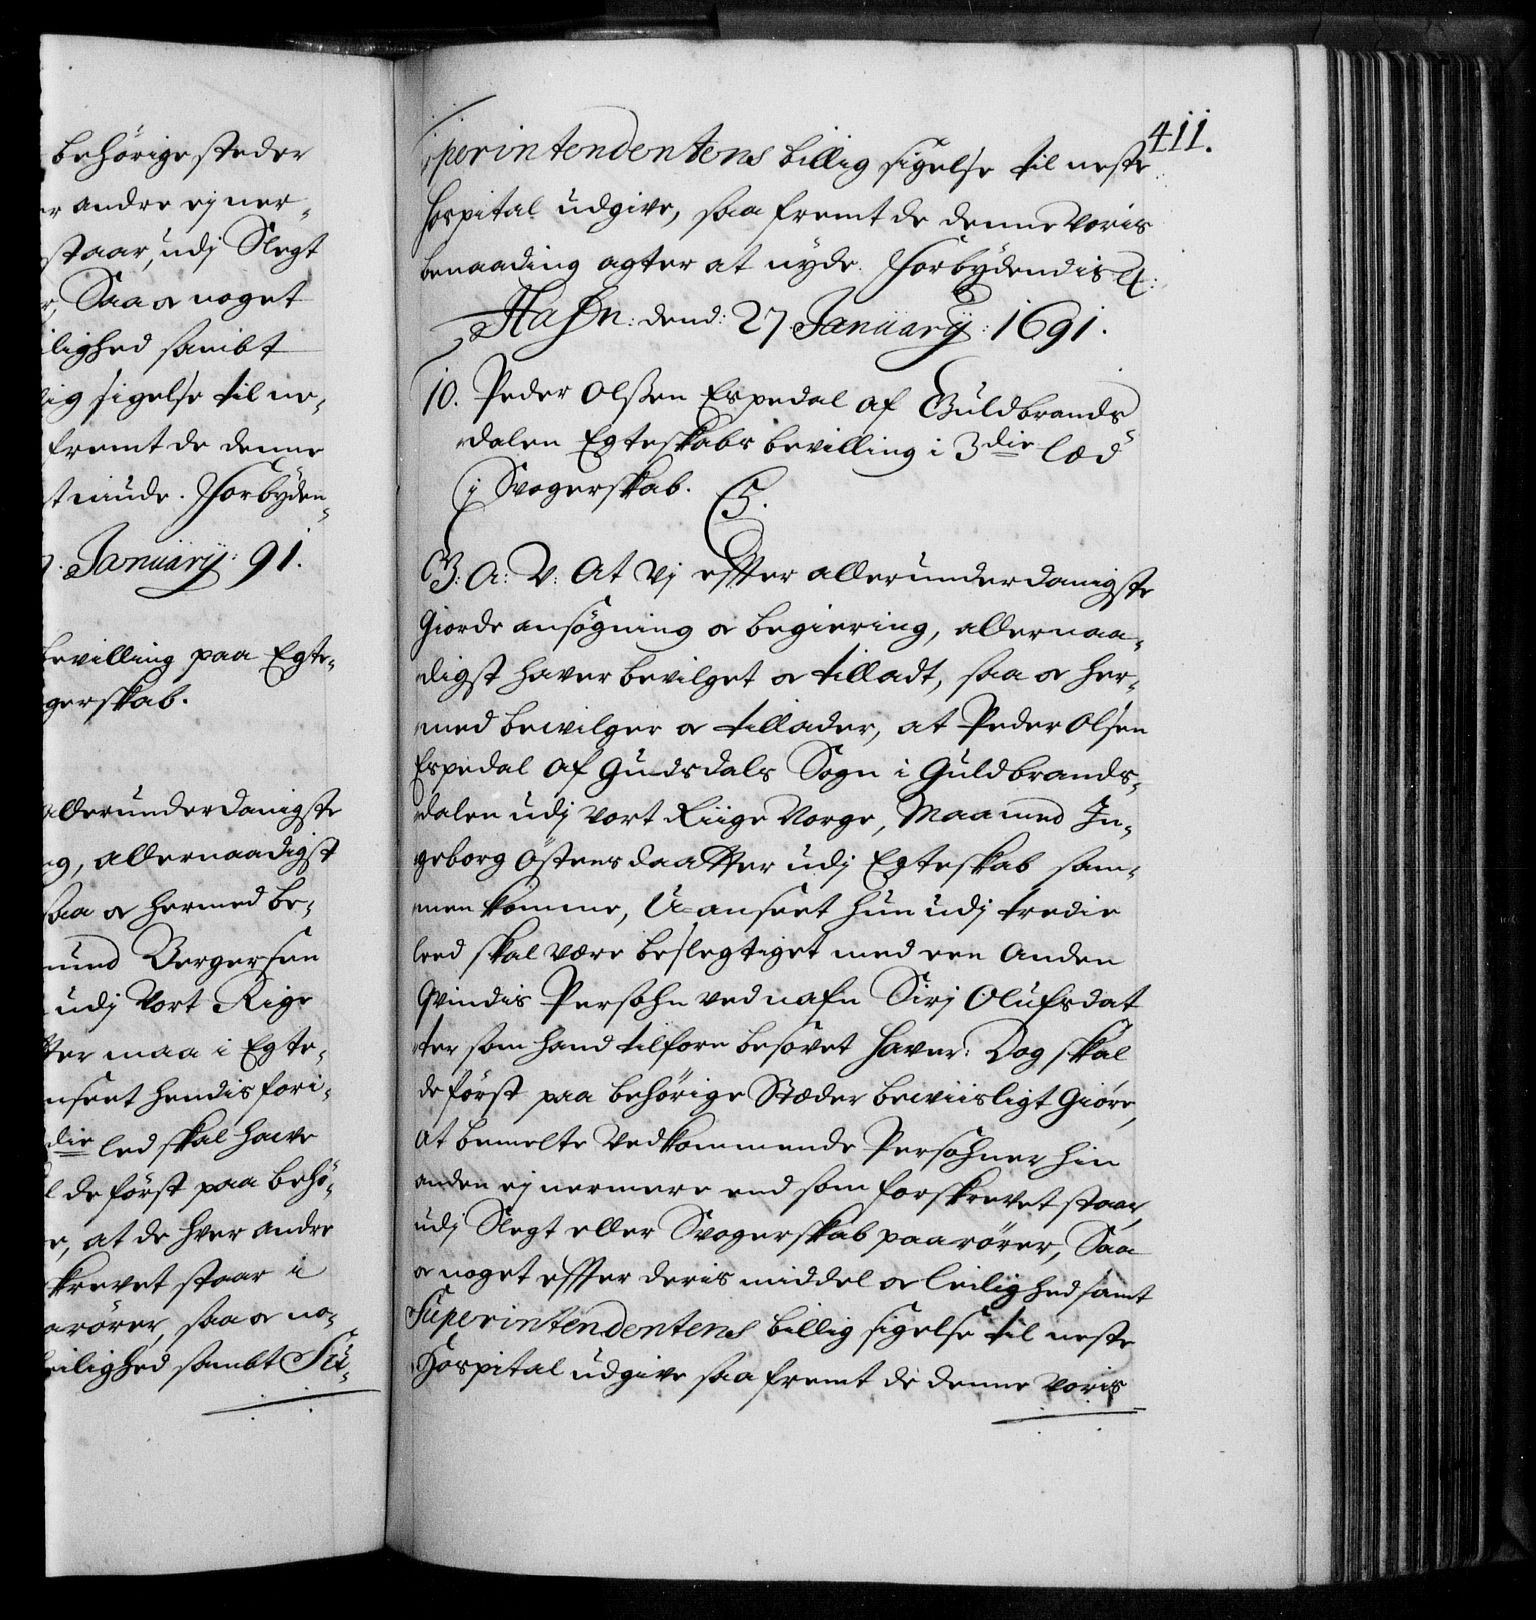 behörige steder
andre ej ner-
staar, udj Slegt
Saa & noget
lighed sambt
lig sigelse til ne-
fremt de denne
niude. Forbyden-
January: 91.
bevilling paa Egte-
gerskab.
allerunderdanigste
ng, allernaadigst
saa & hermed be-
mund Bergersen
udj Vort Rige
tter maa i Egte-
nseet hendis fori-
die led skal have
l de först paa behö-
e, at de hver andre
skrevet staar i
arörer, saa & no-
leilighed sambt Su-
411.
perintendentens billig sigelse til neste
Hospital udgive, saa fremt de denne Voris
benaading agter at nyde. Forbydendis &:
Hafn: dend: 27 January: 1691.
10. Peder Olßen Espedal af Guldbrands-
dalen Egteskabs bevilling i 3die læd
i Svogerskab.
C5.
G: A: V: At Vj effter allerunderdanigste
Giorde ansögning & begiering, allernaa-
digst haver bevilget & tilladt, saa & her-
med bewilger & tillader, at Peder Olsen
Espedal af Gudsdals Sogn i Guldbrands-
dalen udj Vort Riige Norge, Maa med In-
geborg Östensdaatter udj Egteskab sam-
men komme, U-anseet hun udj tredie
leed skal være beslegtiget med een Anden
Qvindis Persohn ved nafn Sirj Olufsdat
ter som hand tilforn besovet haver: Dog skal
de först paa behörige Stæder beviisligt Giöre,
at bemelte Vedkommende Persohner hin
anden ej nermere end som forskrevet staar,
udj Slegt eller Svogerskab paarörer, Saa
& noget effter deris middel & leilighed samt
Superintendentens billig sigelse til neste
Hospital udgive saa fremt de denne Voris